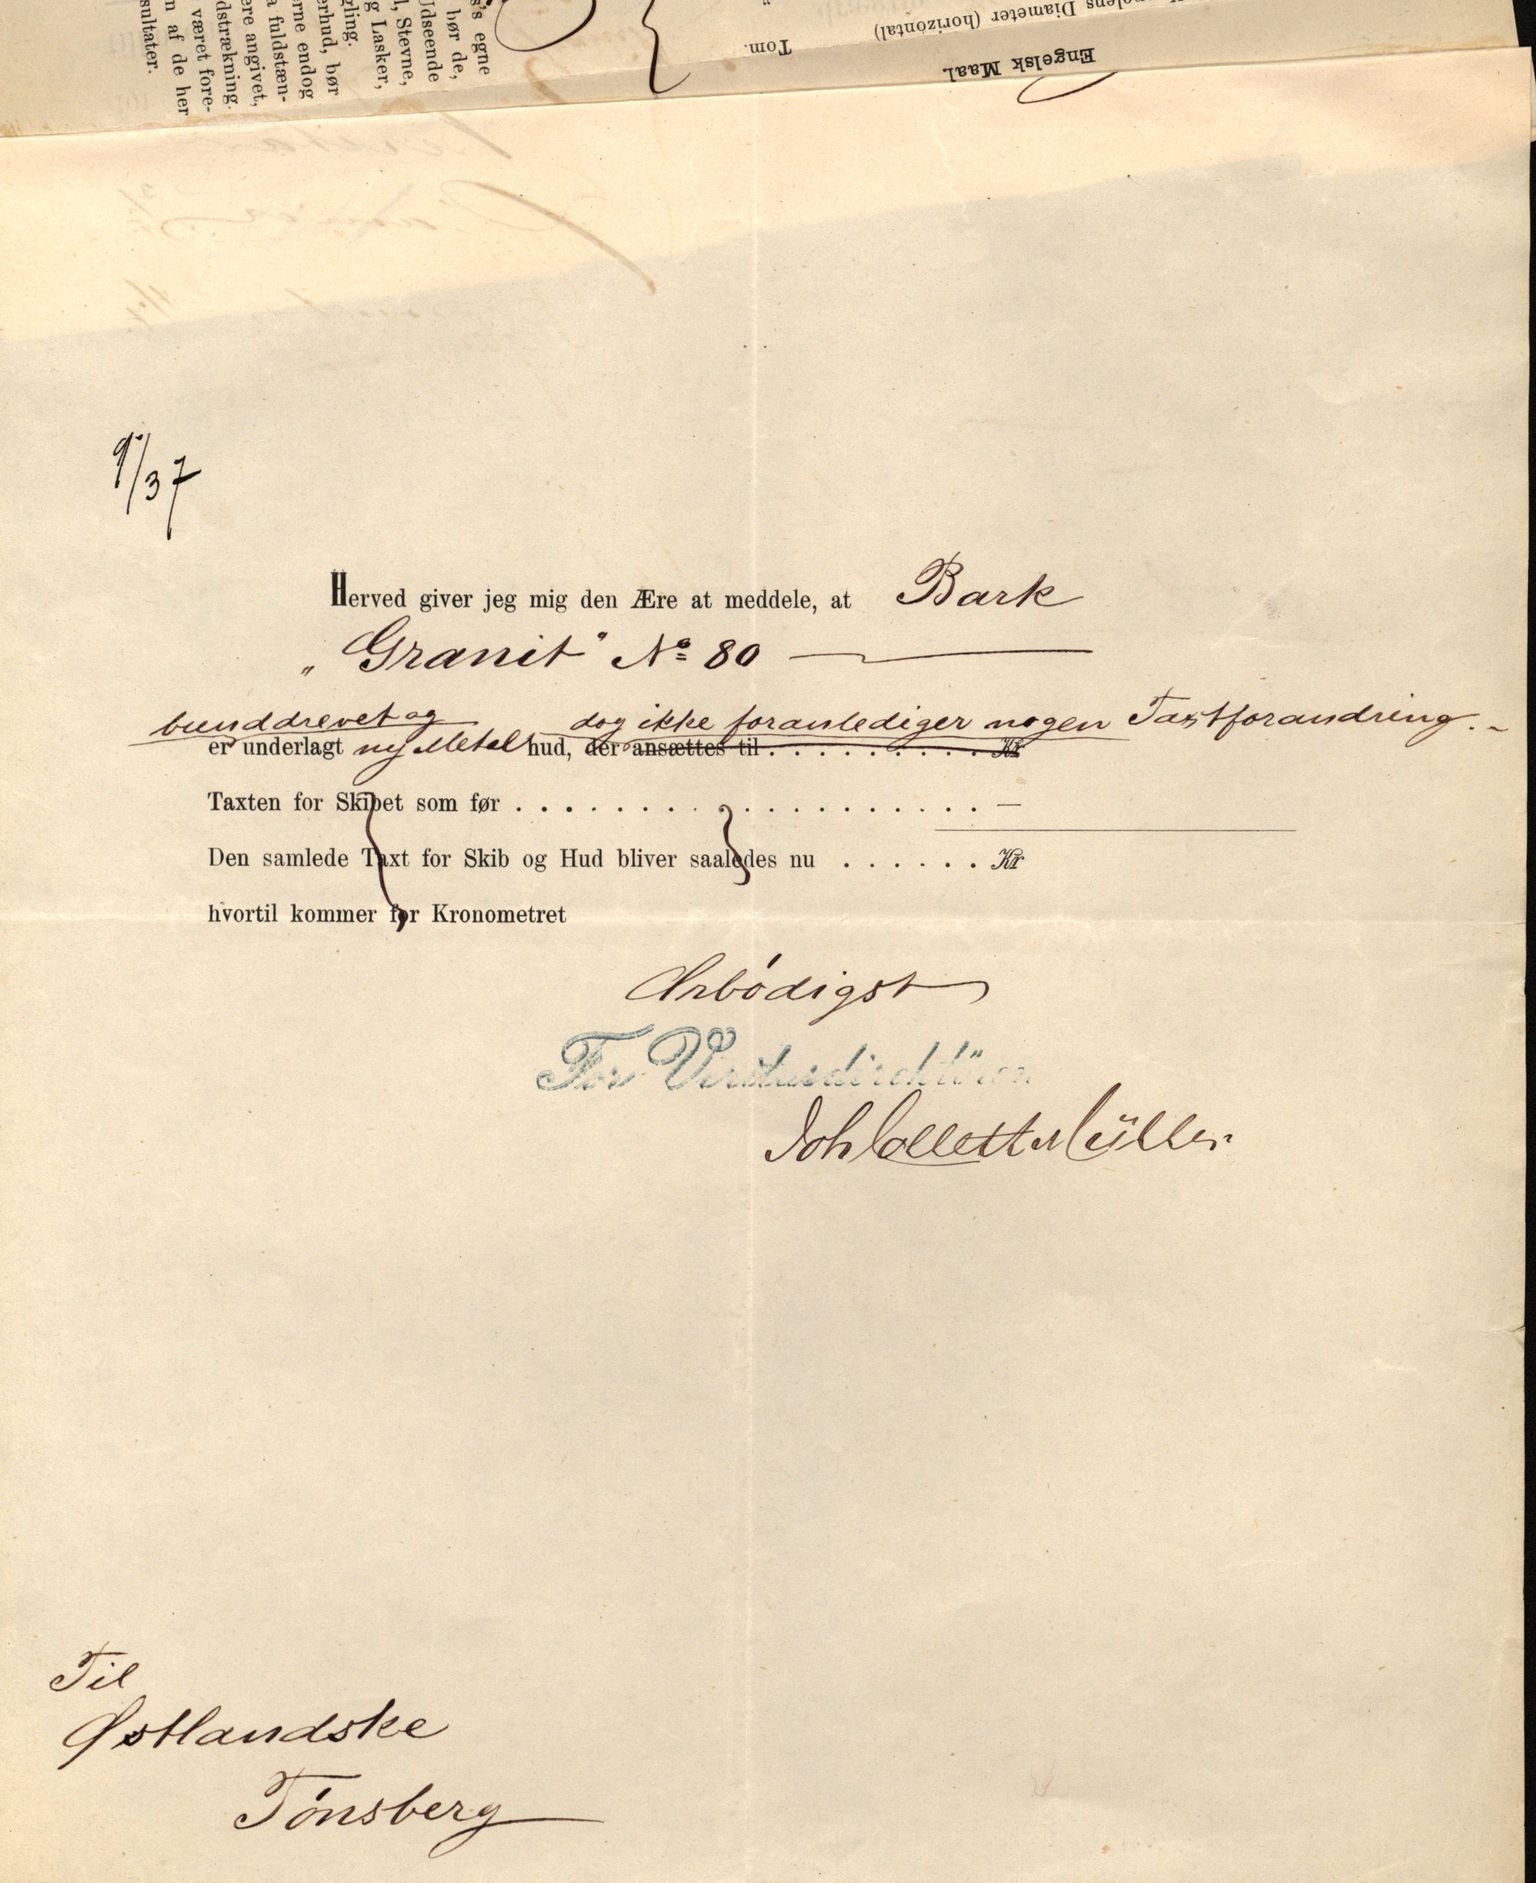 s's egne
bør de,
Udseende
l, Stevne,
g Lasker,
gling.
erhud, bør
erne endog
a fuldstæn-
ere angivet,
dstrækning.
været fore-
n af de her
sultater.
Tom.
Diameter (horizontal)
Engelsk Maal.
9/37
Herved giver jeg mig den Ære at meddele, at Bark
„Granit“ No 80
bunddrevet og dog ikke foranlediger nogen Taxtforandring.
er underlagt ny Metal hud, der ansættes til . . . . . . . . . Kr
Taxten for Skibet som før . . . . . . . . . . . . . . . . . . —
Den samlede Taxt for Skib og Hud bliver saaledes nu . . . . . . Kr
hvortil kommer for Kronometret
Ærbödigst
For Veritasdirektören
Joh Collett Müller
Til
Østlandske
Tönsberg